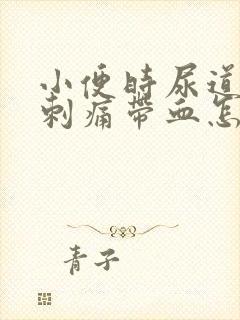 小便时尿道
刺痛带血怎
青子